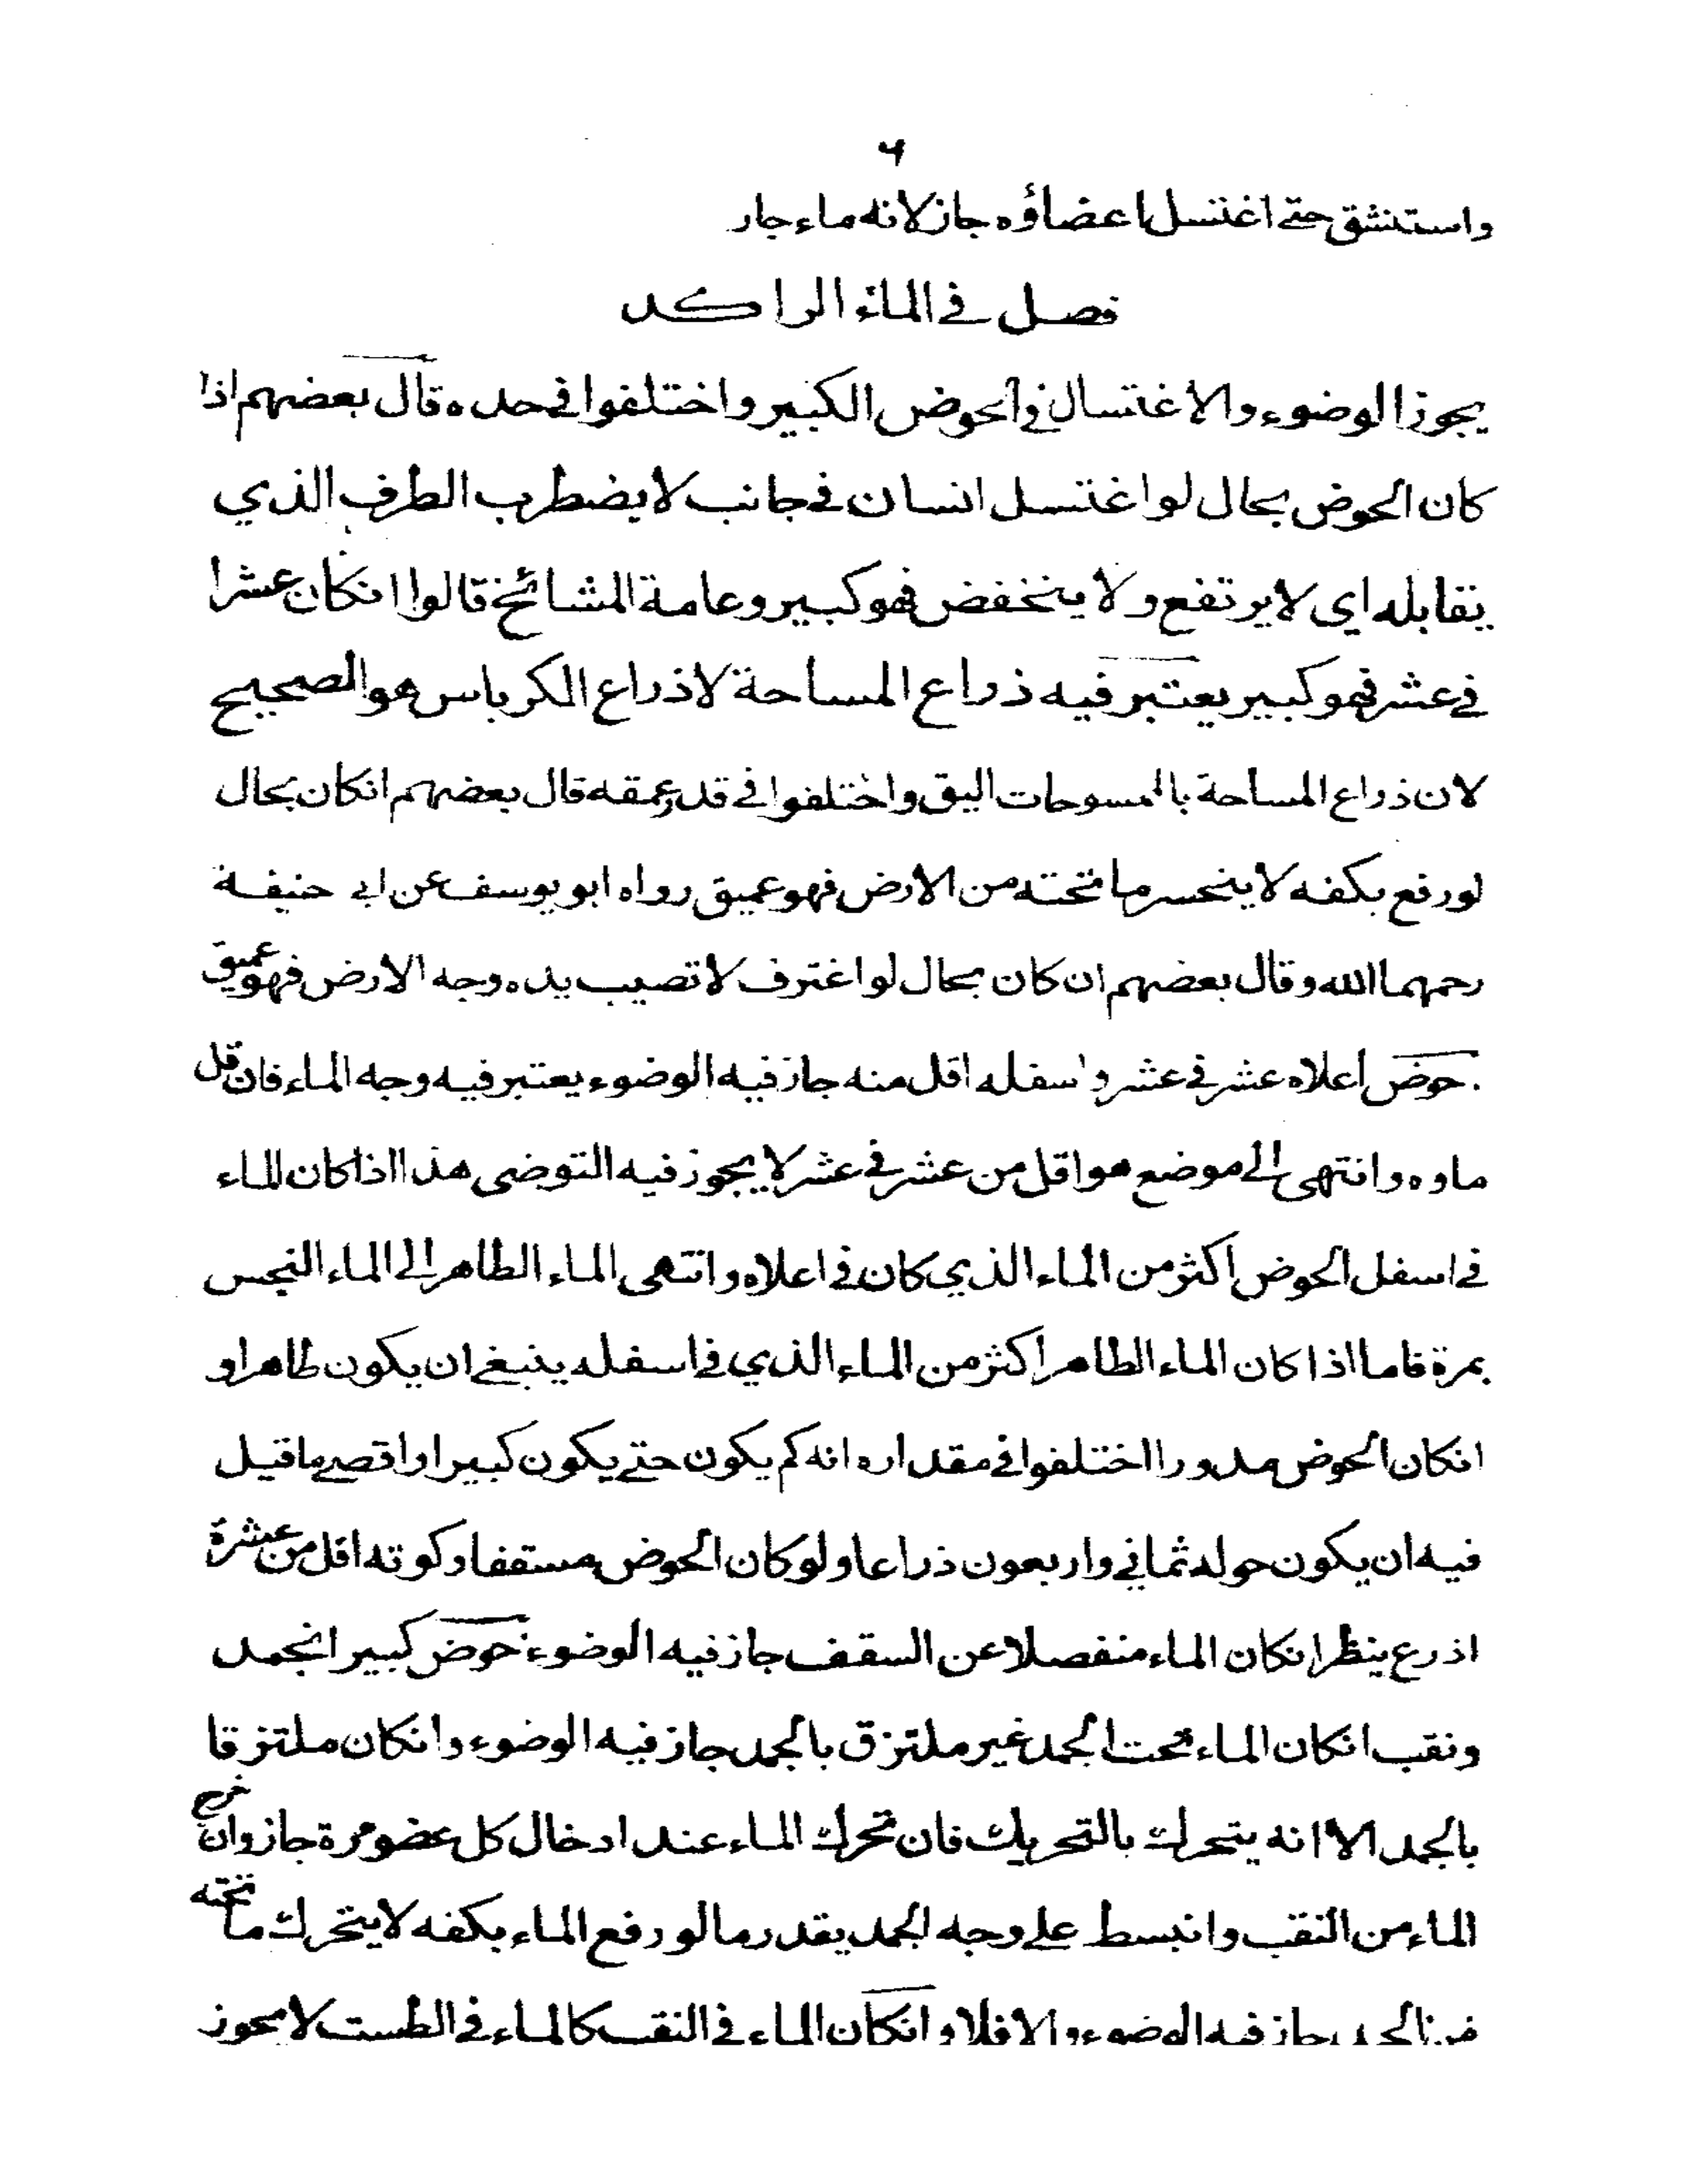 ٦
واستنشق حتے اغتسل اعضاؤه جاز لانه ماء جار
فصل في الماء الراكد
يجوز الوضوء والاغتسال في الحوض الكبير واختلفوا في حده قال بعضهم اذا
كان الحوض بحال لو اغتسل انسان في جانب لا يضطرب الطرف الذي
يقابله اي لا يرتفع ولا ينخفض فهو كبير وعامة المشائخ قالوا انكان عشرا
في عشر فهو كبير يعتبر فيه ذراع المساحة لا ذراع الكرباس هو الصحيح
لان ذراع المساحة بالممسوحات اليق واختلفوا في قدر عمقه قال بعضهم انكان بحال
لو رفع بكفه لا ينحسر ما تحته من الارض فهو عميق رواه ابو يوسف عن ابي حنيفة
رحمهما الله وقال بعضهم ان كان بحال لو اغترف لا تصيب يده وجه الارض فهو عميق
حوض اعلاه عشر في عشر واسفله اقل منه جاز فيه الوضوء يعتبر فيه وجه الماء فان قل
ماوه وانتهى الى موضع هو اقل من عشر في عشر لا يجوز فيه التوضى هذا اذا كان الماء
في اسفل الحوض اكثر من الماء الذي كان في اعلاه وانتهى الماء الطاهر الى الماء النجس
بمرة فاما اذا كان الماء الطاهر اكثر من الماء الذي في اسفله ينبغي ان يكون طاهرا و
انكان الحوض مدورا اختلفوا في مقداره انه كم يكون حتے يكون كبيرا واقصے ما قيل
فيه ان يكون حوله ثماني واربعون ذراعا ولو كان الحوض مسقفا وكوته اقل من عشرة
اذرع ينظر انكان الماء منفصلا عن السقف جاز فيه الوضوء حوض كبير انجمد
ونقب انكان الماء تحت الجمد غير ملتزق بالجمد جاز فيه الوضوء وانكان ملتزقا
بالجمد الا انه يتحرك بالتحريك فان تحرك الماء عند ادخال كل عضو مرة جاز وان خرج
الماء من النقب وانبسط علے وجه الجمد بقدر ما لو رفع الماء بكفه لا يتحرك ما تحته
من الجمد جاز فيه الوضوء والا فلا وانكان الماء في النقب كالماء في الطست لا يجوز